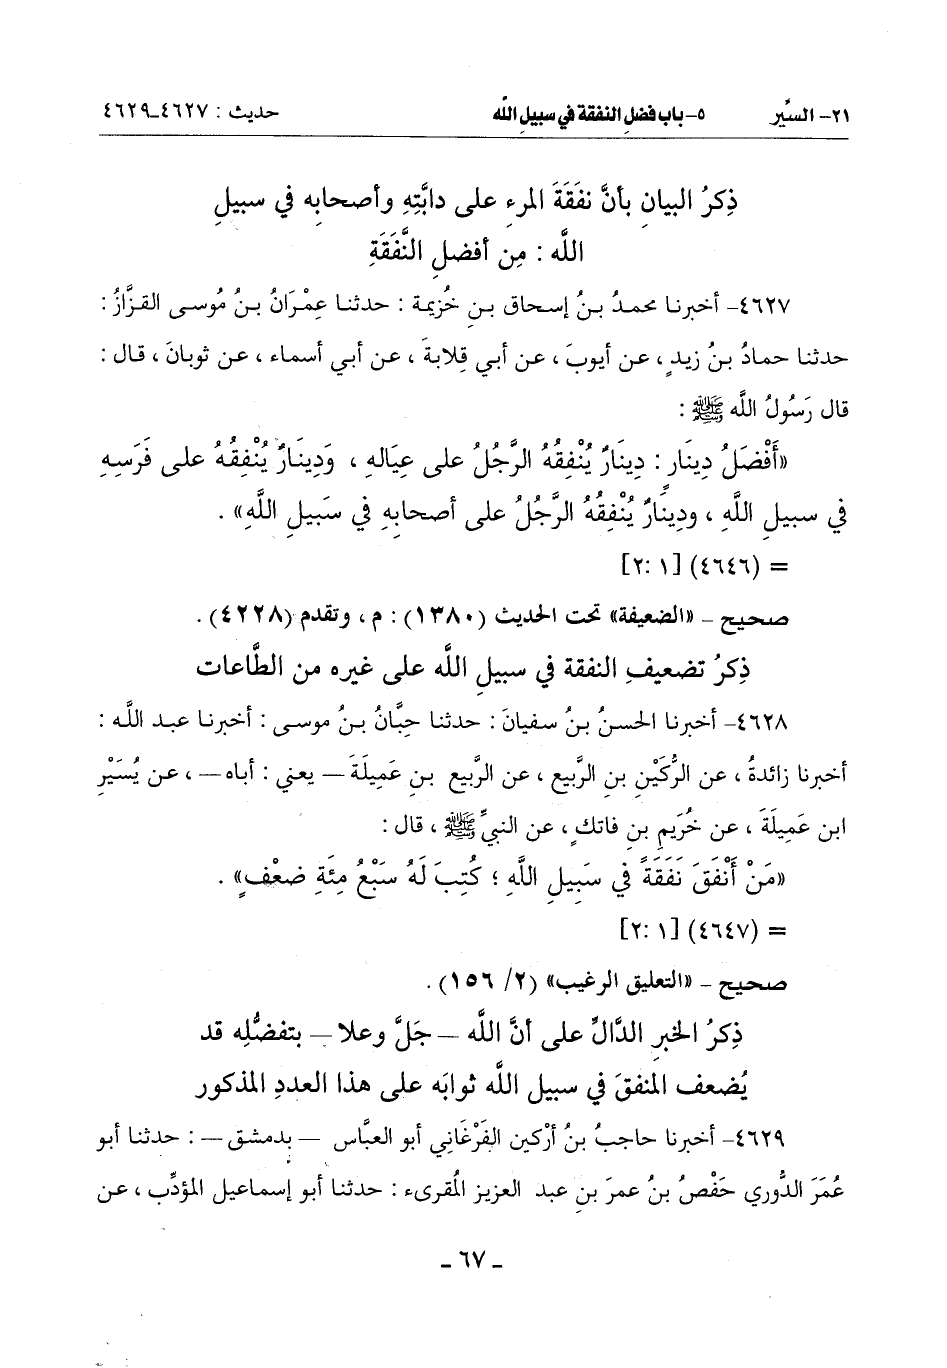 ٢١- السِّير ٥- باب فضل النفقة في سبيل اللَّه حديث : ٤٦٢٧-٤٦٢٩
ذِكرُ البيان بأنَّ نفَقَةَ المرء على دابَّتِهِ وأصحابِه في سبيلِ
اللَّه : مِن أفضلِ النَّفَقَةِ
٤٦٢٧- أخبرنا محمدُ بنُ إسحاق بنِ خُزيمة : حدثنا عِمْرَانُ بنُ مُوسى القزَّازُ :
حدثنا حمادُ بنُ زيدٍ ، عن أيوبَ ، عن أبي قِلابةَ ، عن أبي أسماء ، عن ثوبانَ ، قال :
قال رَسُولُ اللَّه ﷺ :
«أَفْضَلُ دِينَارٍ : دِينَارٌ يُنْفِقُهُ الرَّجُلُ على عِيَالِهِ ، وَدِينَارٌ يُنْفِقُهُ على فَرَسِهِ
في سبيلِ اللَّهِ ، ودِينَارٌ يُنْفِقُهُ الرَّجُلُ على أصحابِهِ في سَبِيلِ اللَّهِ» .
= (٤٦٤٦) [١ :٢]
صحيح – «الضعيفة» تحت الحديث (١٣٨٠) : م ، وتقدم (٤٢٢٨) .
ذِكرُ تضعيفِ النفقة في سبيلِ اللَّه على غيره من الطَّاعات
٤٦٢٨- أخبرنا الحسنُ بنُ سفيانَ : حدثنا حِبَّانُ بنُ موسى : أخبرنا عبد اللَّه :
أخبرنا زائدةُ ، عن الرُّكَيْنِ بنِ الرَّبيع ، عن الرَّبيع بنِ عَمِيلَةَ – يعني : أباه – ، عن يُسَيْرِ
ابن عَمِيلَةَ ، عن خُرَيمِ بنِ فاتكٍ ، عن النبيِّ ﷺ ، قال :
«مَنْ أَنْفَقَ نَفَقَةً في سَبِيلِ اللَّهِ ؛ كُتِبَ لَهُ سَبْعُ مِئَةِ ضعْفٍ» .
= (٤٦٤٧) [١ :٢]
صحيح – «التعليق الرغيب» (٢/ ١٥٦) .
ذِكرُ الخبرِ الدَّالِّ على أنَّ اللَّه – جَلَّ وعلا – بتفضُّلِه قد
يُضعف المنفقَ في سبيلِ اللَّه ثوابَه على هذا العددِ المذكور
٤٦٢٩- أخبرنا حاجبُ بنُ أرْكين الفَرْغَاني أبو العبَّاس – بدمشق – : حدثنا أبو
عُمَرَ الدُّوري حَفْصُ بنُ عمرَ بنِ عبد العزيز المُقرىء : حدثنا أبو إسماعيل المؤدِّب ، عن
- ٦٧ -